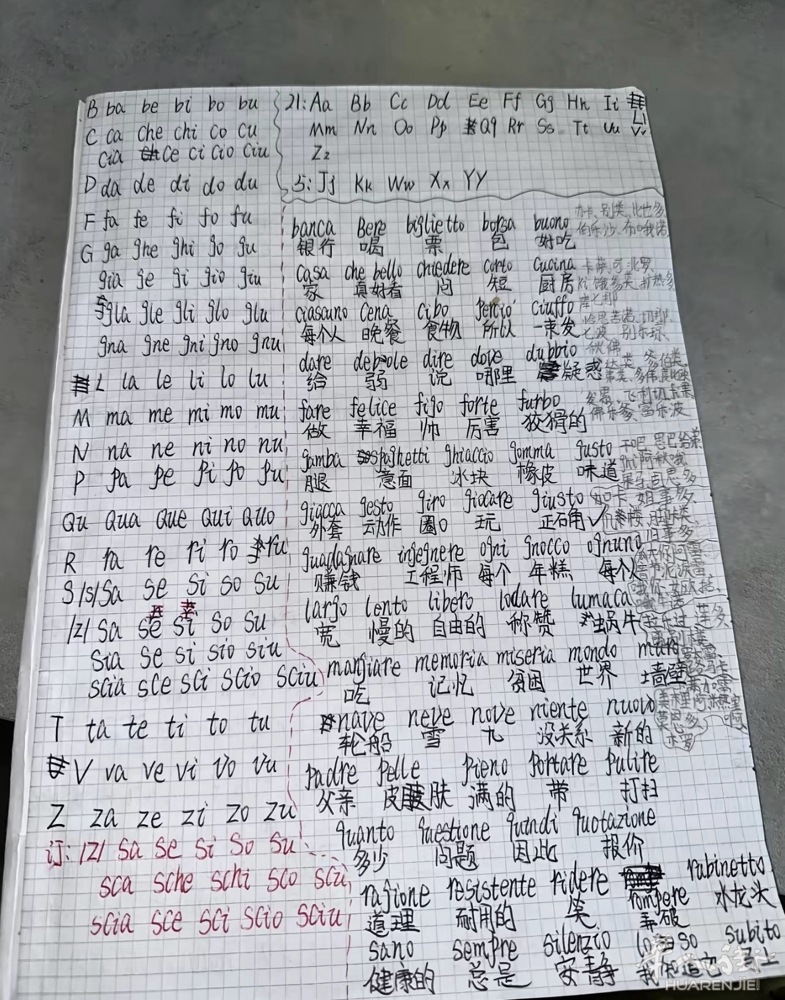 B ba be bi bo bu
C ca che chi co cu
cia ce ci cio ciu
D da de di do du
F fa fe fi fo fu
G ga ghe ghi go gu
gia ge gi gio giu
gla gle gli glo glu
gna gne gni gno gnu
L la le li lo lu
M ma me mi mo mu
N na ne ni no nu
P pa pe pi po pu
Qu Qua Que Qui Quo
R ra re ri ro ru
S /s/ sa se si so su
/z/ sa se si so su
sia se si sio siu
scia sce sci scio sciu
T ta te ti to tu
V va ve vi vo vu
Z za ze zi zo zu
订: /z/ sa se si so su
sca sche schi sco scu
scia sce sci scio sciu
21: Aa Bb Cc Dd Ee Ff Gg Hh Ii Ll
Mm Nn Oo Pp Qq Rr Ss Tt Uu Vv
Zz
5: Jj Kk Ww Xx YY
banca Bere biglietto borsa buono
银行 喝 票 包 好吃
casa che bello chiedere corto Cucina
家 真好看 问 短 厨房
ciascuno Cena cibo perciò ciuffo
每个人 晚餐 食物 所以 一束发
dare debole dire dove dubbio
给 弱 说 哪里 疑惑
fare felice figo forte furbo
做 幸福 帅 厉害 狡猾的
gamba spaghetti ghiaccio gomma gusto
腿 意面 冰块 橡皮 味道
giacca gesto giro giocare giusto
外套 动作 圈 玩 正确
guadagnare ingegnere ogni gnocco ognuno
赚钱 工程师 每个 年糕 每个人
largo lento libero lodare lumaca
宽 慢的 自由的 称赞 蜗牛
mangiare memoria miseria mondo muro
吃 记忆 贫困 世界 墙壁
nave neve nove niente nuovo
轮船 雪 九 没关系 新的
padre pelle pieno portare pulire
父亲 皮肤 满的 带 打扫
quanto questione quindi quotazione
多少 问题 因此 报价
ragione resistente ridere rompere rubinetto
道理 耐用的 笑 弄破 水龙头
sano sempre silenzio lo so subito
健康的 总是 安静 我知道 马上
HUARENJIE